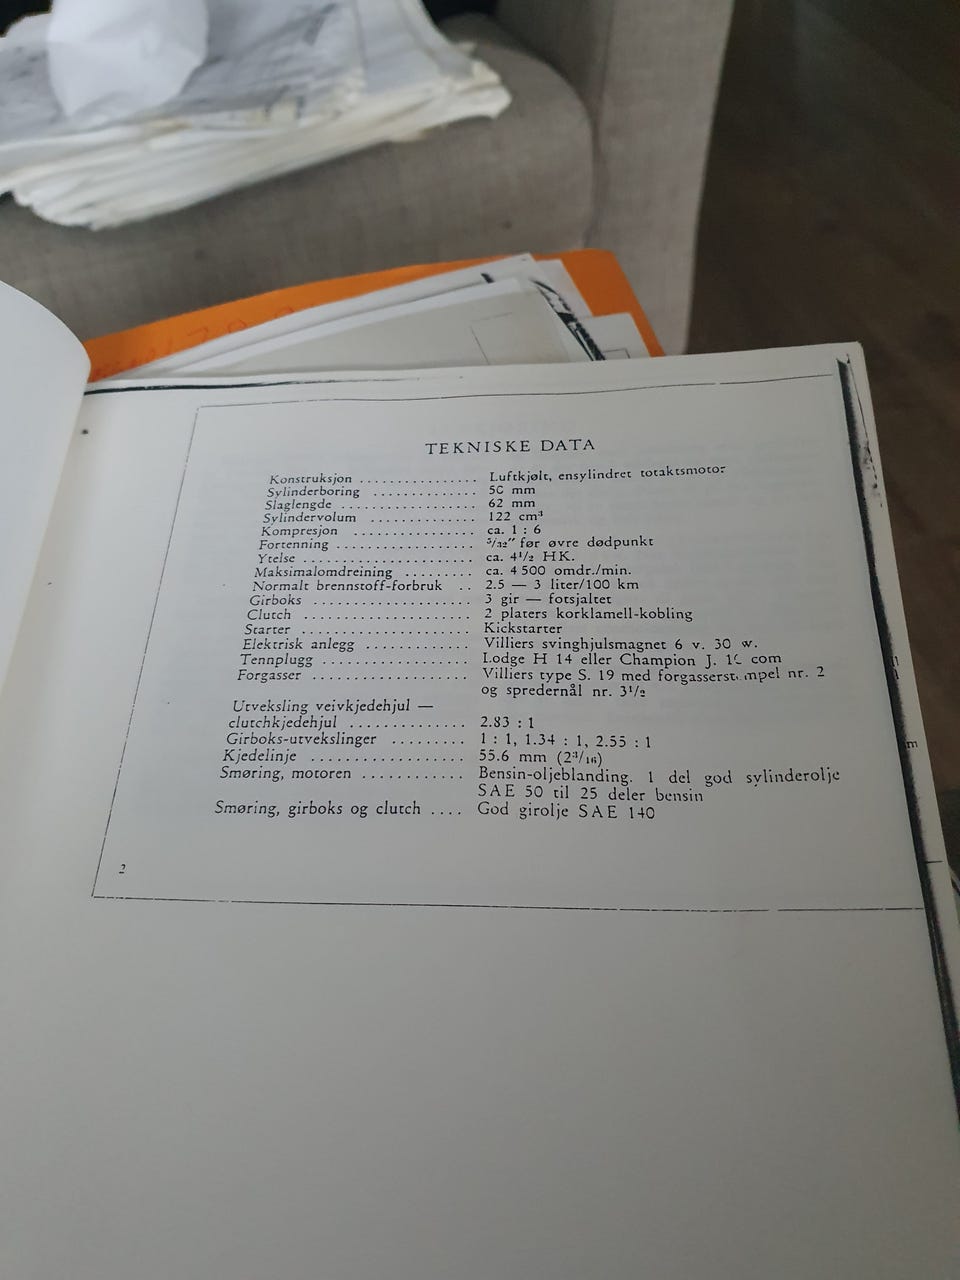 TEKNISKE DATA
Konstruksjon ................ Luftkjølt, ensylindret totaktsmotor
Sylinderboring .............. 50 mm
Slaglengde .................. 62 mm
Sylindervolum .............. 122 cm³
Kompresjon ................ ca. 1 : 6
Fortenning .................. 5/32" før øvre dødpunkt
Ytelse ....................... ca. 4 1/2 HK.
Maksimalomdreining ......... ca. 4 500 omdr./min.
Normalt brennstoff-forbruk .. 2.5 — 3 liter/100 km
Girboks ..................... 3 gir — fotsjaltet
Clutch ...................... 2 platers korklamell-kobling
Starter ...................... Kickstarter
Elektrisk anlegg ............. Villiers svinghjulsmagnet 6 v. 30 w.
Tennplugg ................... Lodge H 14 eller Champion J. com
Forgasser .................... Villiers type S. 19 med forgasserstempel nr. 2
og sprednernål nr. 3 1/2
Utveksling veivkjedehjul —
clutchkjedehjul .............. 2.83 : 1
Girboks-utvekslinger ......... 1 : 1, 1.34 : 1, 2.55 : 1
Kjedelinje ................... 55.6 mm (2 3/16)
Smøring, motoren ............ Bensin-oljeblanding. 1 del god sylinderolje
SAE 50 til 25 deler bensin
Smøring, girboks og clutch .... God girolje SAE 140
2